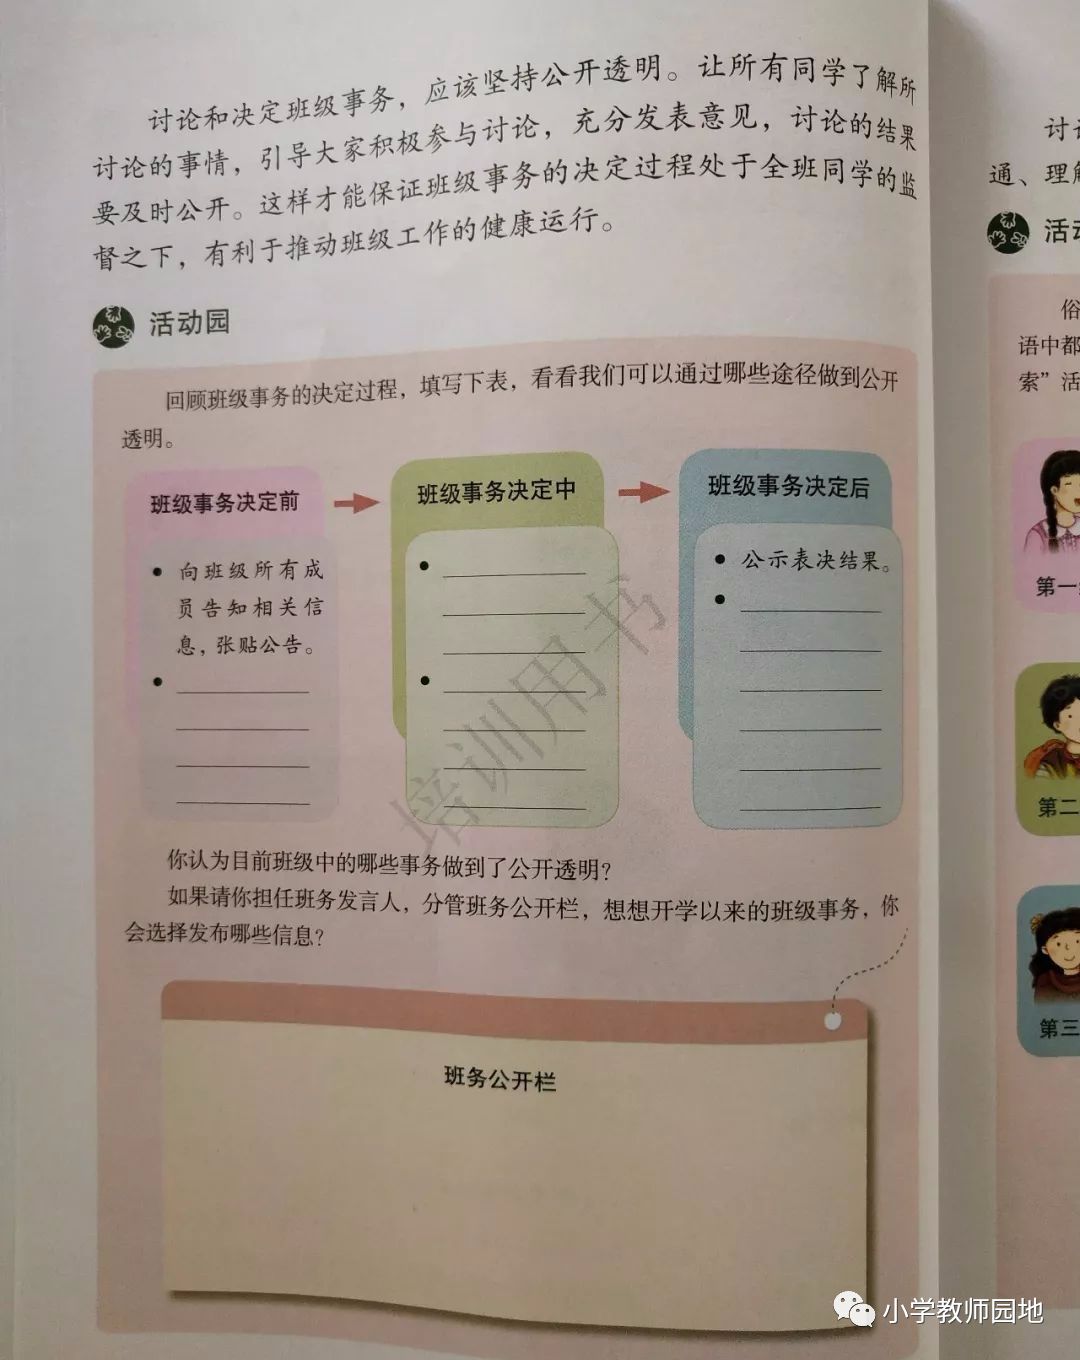 讨论和决定班级事务，应该坚持公开透明。让所有同学了解所
讨论的事情，引导大家积极参与讨论，充分发表意见，讨论的结果
要及时公开。这样才能保证班级事务的决定过程处于全班同学的监
督之下，有利于推动班级工作的健康运行。
活动园
回顾班级事务的决定过程，填写下表，看看我们可以通过哪些途径做到公开
透明。
班级事务决定前
向班级所有成
员告知相关信
息，张贴公告。
班级事务决定中
班级事务决定后
公示表决结果。
培训用书
你认为目前班级中的哪些事务做到了公开透明？
如果请你担任班务发言人，分管班务公开栏，想想开学以来的班级事务，你
会选择发布哪些信息？
班务公开栏
通、理
活
俗
语中都
索”活
第一
第二
第三
小学教师园地